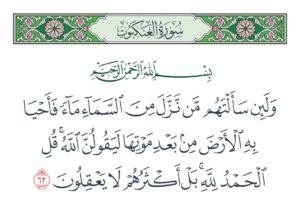 سُورَةُ الْعَنْكَبُوتِ
بِسْمِ اللَّهِ الرَّحْمَٰنِ الرَّحِيمِ
وَلَئِن سَأَلْتَهُم مَّن نَّزَّلَ مِنَ السَّمَآءِ مَآءً فَأَحْيَا
بِهِ الْأَرْضَ مِنۢ بَعْدِ مَوْتِهَا لَيَقُولُنَّ اللَّهُ ۚ قُلِ
الْحَمْدُ لِلَّهِ ۚ بَلْ أَكْثَرُهُمْ لَا يَعْقِلُونَ ٦٣